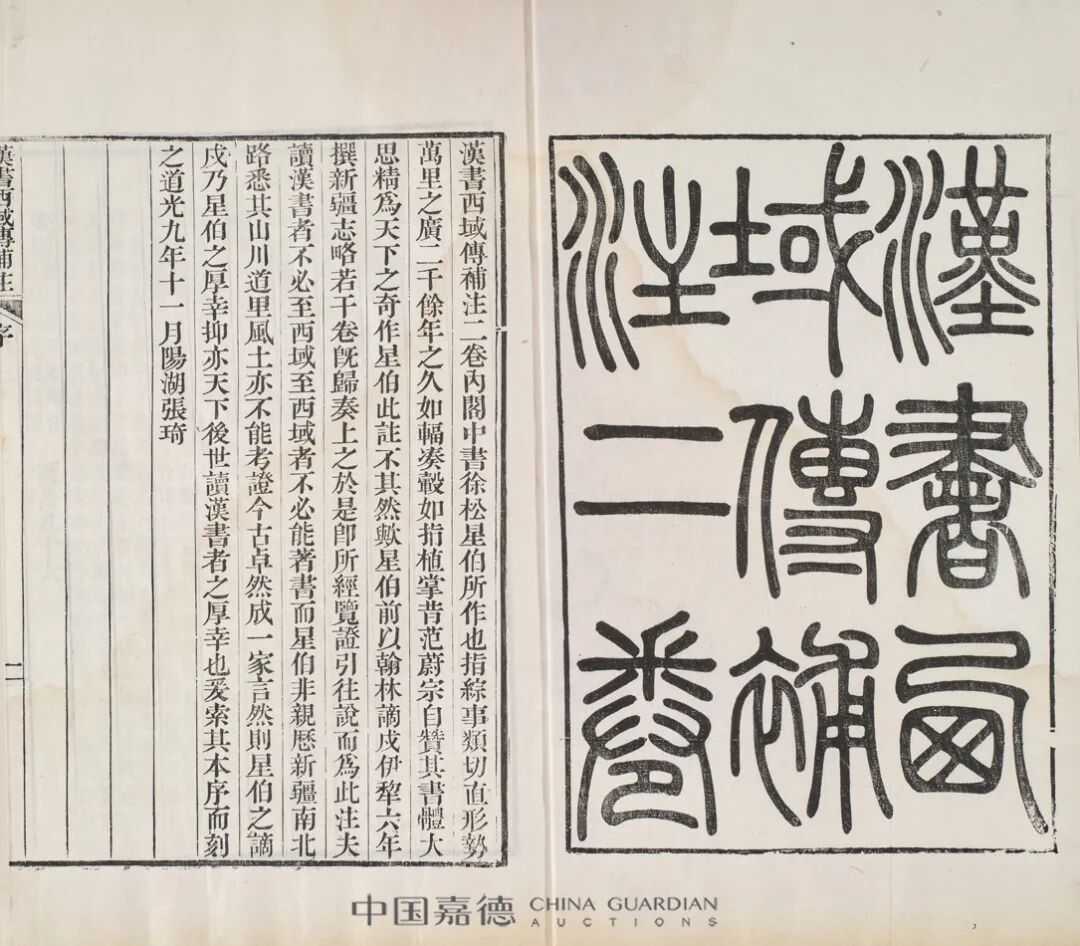 漢書西
域傳補
注二卷
漢書西域傳補注二卷內閣中書徐松星伯所作也指綜事類切直形勢
萬里之廣二千餘年之久如輻凑轂如指植掌昔范蔚宗自贊其書體大
思精為天下之奇作星伯此註不其然歟星伯前以翰林謫戍伊犂六年
撰新疆志略若干卷旣歸奏上之於是卽所經覽證引往說而為此注夫
讀漢書者不必至西域至西域者不必能著書而星伯非親歴新疆南北
路悉其山川道里風土亦不能考證今古卓然成一家言然則星伯之謫
戍乃星伯之厚幸抑亦天下後世讀漢書者之厚幸也爰索其本序而刻
之道光九年十一月陽湖張琦
漢書西域傳補注 序
二
中国嘉德 CHINA GUARDIAN
AUCTIONS